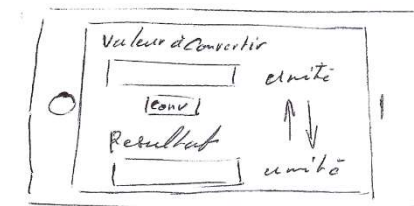 Valeur à Convertir
unité
Conv
Resultat
unité